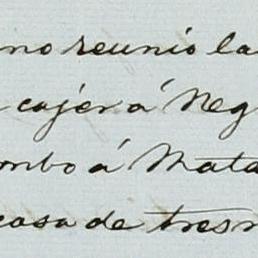 no reunio la
cojer á Neg
mbo á Mata
casa de tres